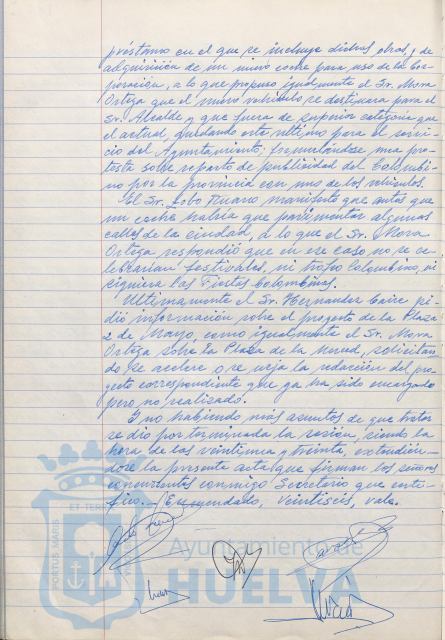 préstamo en el que se incluye dichas obras, y de
adquisición de un nuevo coche para uso de la Cor-
poración, a lo que propuso igualmente el Sr. Mora
Ortega que el nuevo vehículo, se destinara para el
Sr. Alcalde y que fuera de superior categoría que
el actual, quedando este último para el servi-
cio del Ayuntamiento; formulándose una pro-
testa sobre reparto de publicidad del Colombi-
no por la provincia con uno de los vehículos.
El Sr. Lobo manifestó que antes que
un coche habría que pavimentar algunas
calles de la ciudad, a lo que el Sr. Mora
Ortega respondió que en ese caso no se ce-
lebrarían festivales, ni trofeo Colombino, ni
siquiera las Fiestas Colombinas.
Ultimamente el Sr. Hernández pi-
dió información sobre el proyecto de la Plaza
2 de Mayo, como igualmente el Sr. Mora
Ortega sobre la Plaza de la Merced, solicitan-
do se acelere o se exija la redacción del pro-
yecto correspondiente que ya ha sido encargado
pero no realizado.
Y no habiendo más asuntos de que tratar
se dió por terminada la sesión, siendo la
hora de las veintiuna y treinta, extendién-
dose la presente acta que firman los señores
concurrentes conmigo Secretario que certi-
fico.- Enmendado, veintiséis, vale.
PORTUS MARIS
ET TERRE
Ayuntamiento de
HUELVA